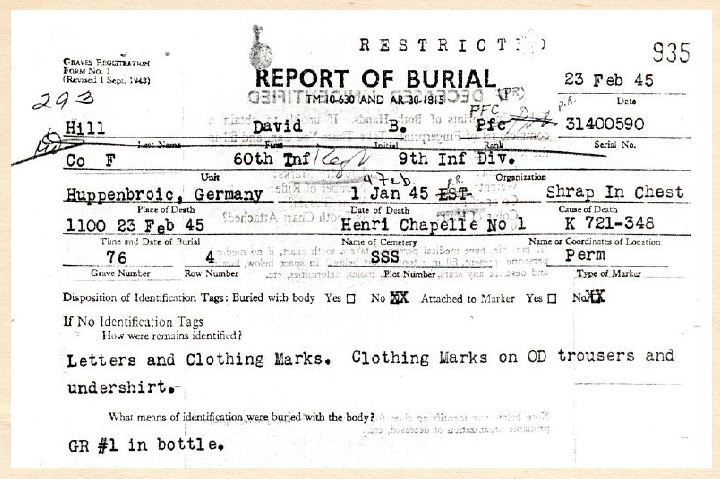 RESTRICTED
935
GRAVES REGISTRATION
FORM No. 1
(Revised 1 Sept. 1943)
REPORT OF BURIAL
TM 10-630 AND AR 30-1815
23 Feb 45
Date
293
PFC
Hill David B. Pfc 31400590
Last Name First Initial Rank Serial No.
Co F 60th Inf Regt 9th Inf Div.
Unit Organization
9 Feb
Huppenbroic, Germany 1 Jan 45 EST Shrap In Chest
Place of Death Date of Death Cause of Death
1100 23 Feb 45 Henri Chapelle No 1 K 721-348
Time and Date of Burial Name of Cemetery Name or Coordinates of Location
76 4 SSS Perm
Grave Number Row Number Plot Number Type of Marker
Disposition of Identification Tags: Buried with body Yes □ No XX Attached to Marker Yes □ No XX
If No Identification Tags
How were remains identified?
Letters and Clothing Marks. Clothing Marks on OD trousers and
undershirt.
What means of identification were buried with the body?
GR #1 in bottle.